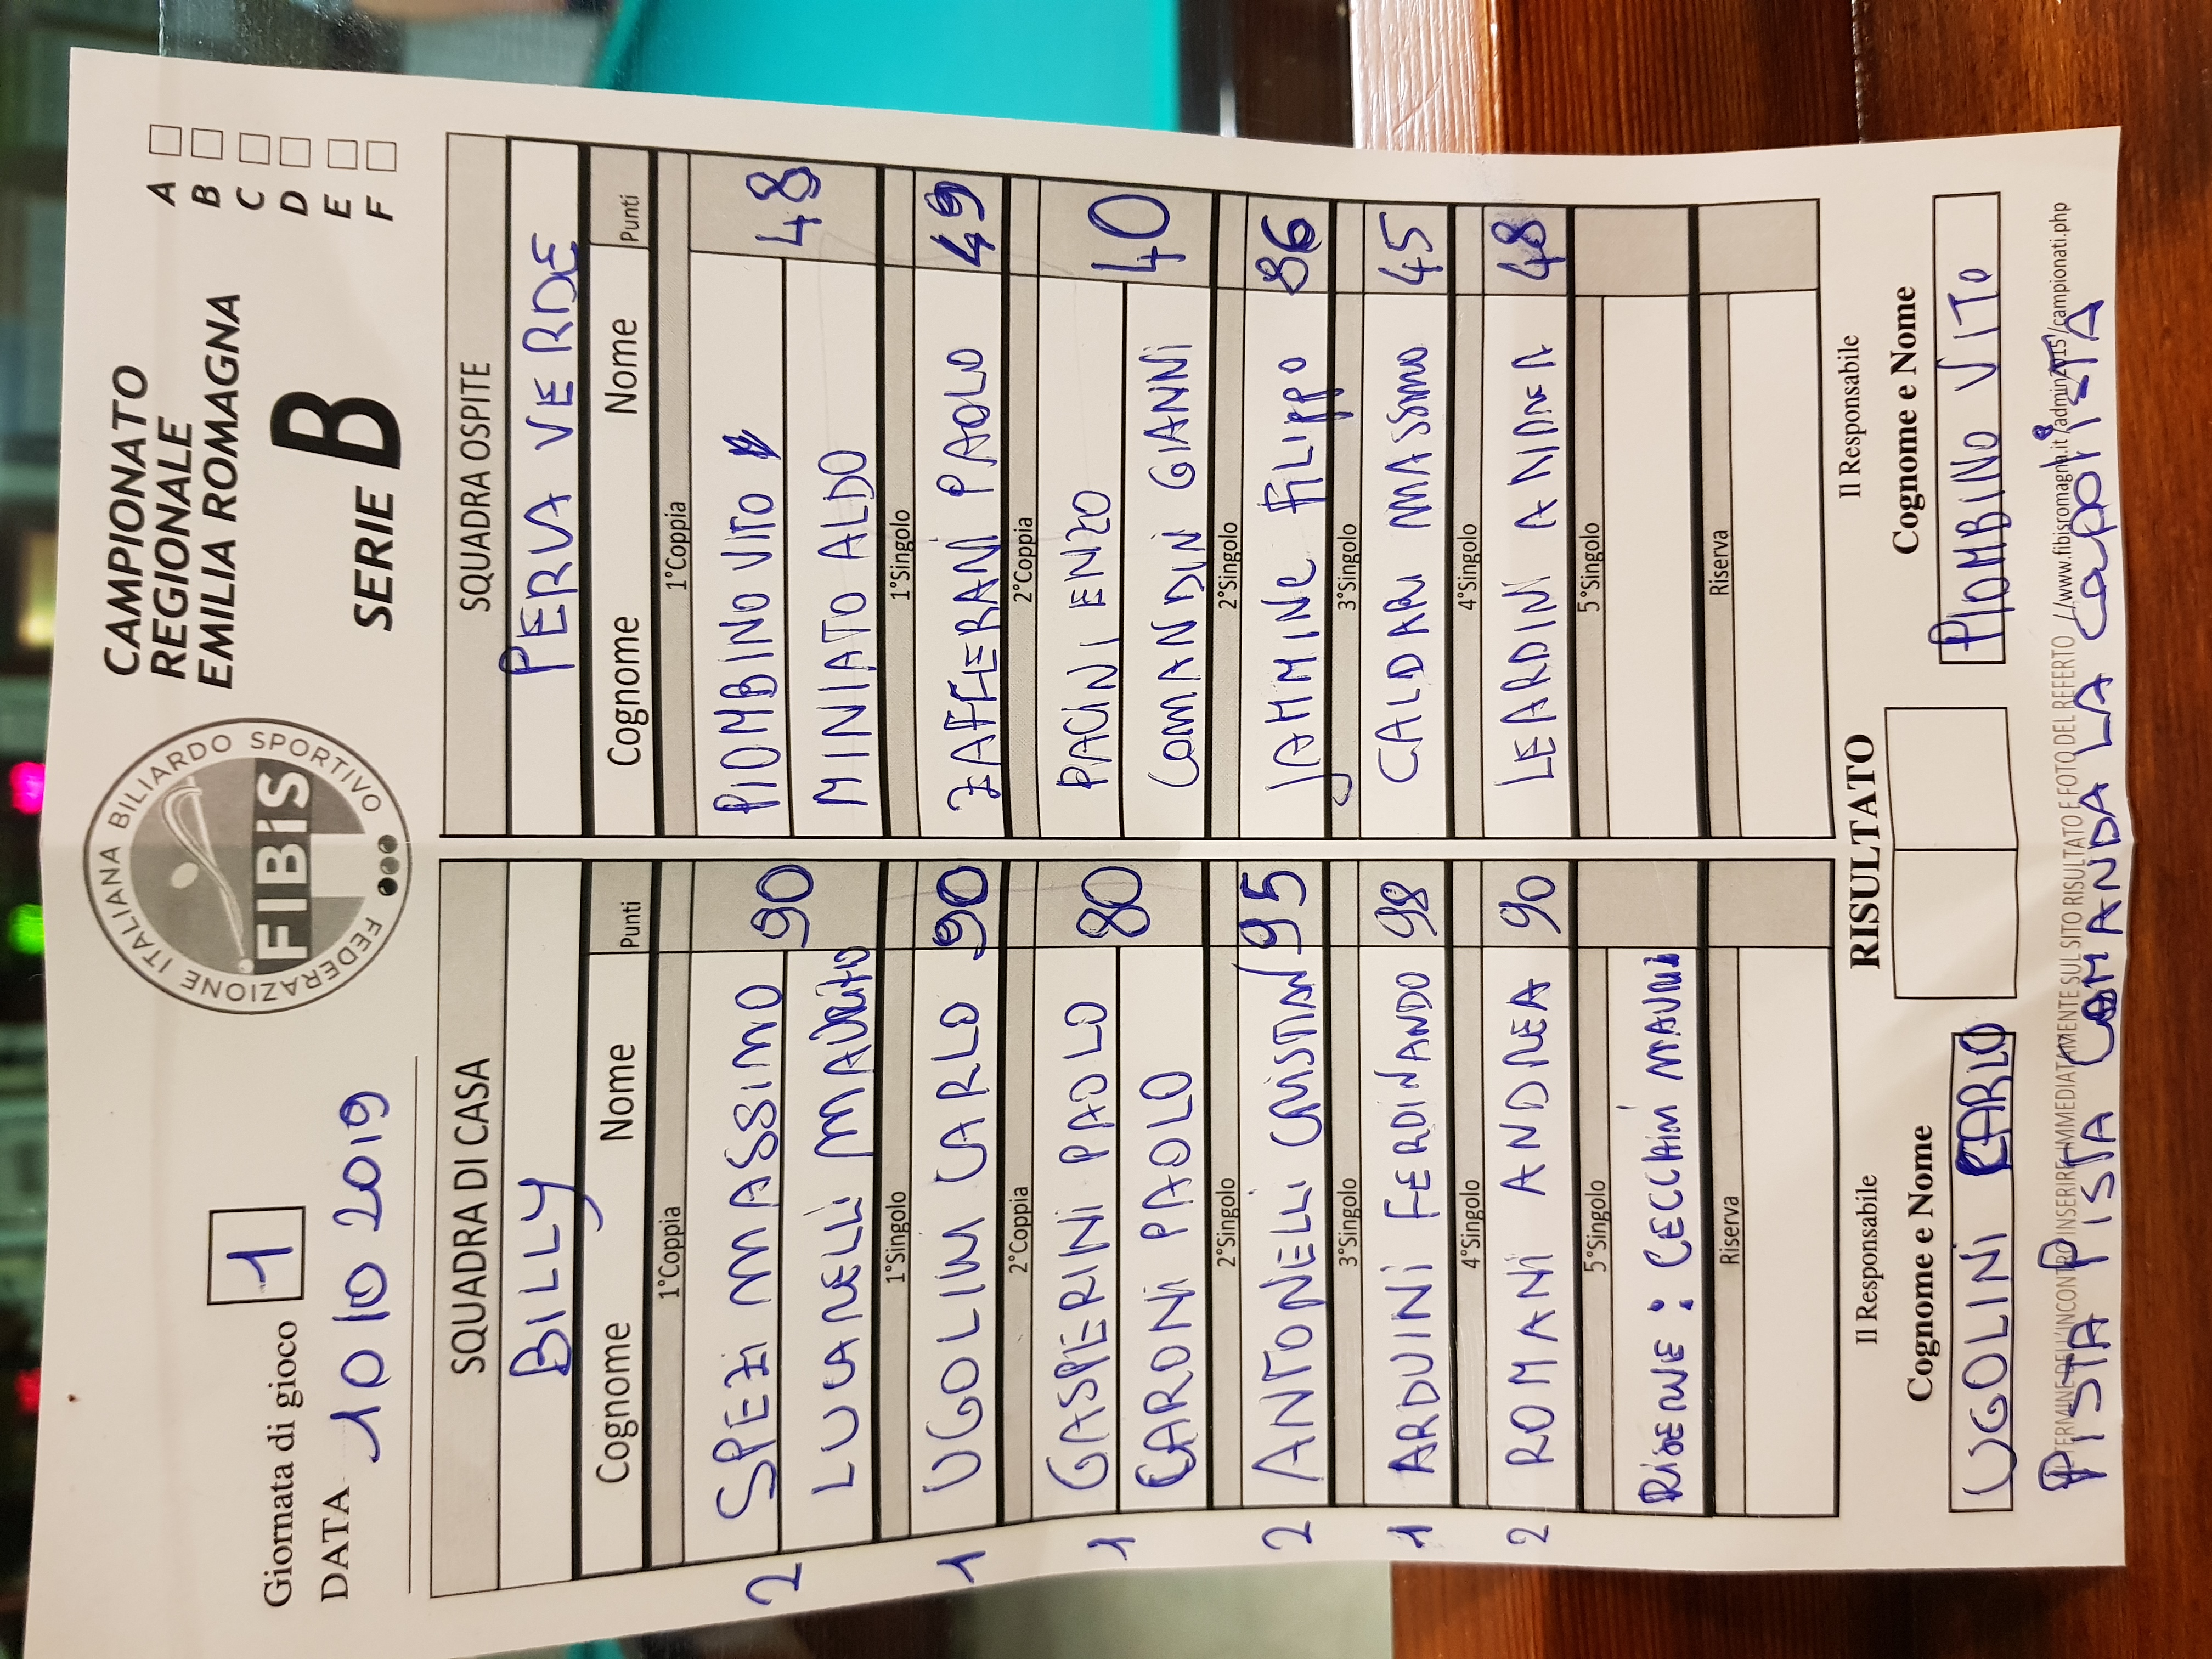 Giornata di gioco 1
DATA 10 10 2019
FEDERAZIONE ITALIANA BILIARDO SPORTIVO
FIBiS
CAMPIONATO
REGIONALE
EMILIA ROMAGNA
SERIE B
A
B
C
D
E
F
SQUADRA DI CASA
BILLY
Cognome Nome Punti
1°Coppia
2 SPEZI MASSIMO 90
LUCARELLI
1°Singolo
1 UGOLINI CARLO 90
2°Coppia
1 GASPERINI PAOLO 80
CARONI PAOLO
2°Singolo
2 ANTONELLI CRISTIAN 95
3°Singolo
1 ARDUINI FERDINANDO 98
4°Singolo
2 ROMANI ANDREA 90
5°Singolo
RISERVE: CECCHINI
Riserva
SQUADRA OSPITE
PERVA VERDE
Cognome Nome Punti
1°Coppia
PIOMBINO VITO 48
MINIATO ALDO
1°Singolo
ZAFFERANI PAOLO 49
2°Coppia
PACINI ENZO 40
COMANDINI GIANNI
2°Singolo
JAHMINE FILIPPO 86
3°Singolo
CALDARI MASSIMO 45
4°Singolo
LEARDINI ANDREA 48
5°Singolo
Riserva
Il Responsabile
Cognome e Nome
UGOLINI CARLO
RISULTATO
Il Responsabile
Cognome e Nome
PIOMBINO VITO
AL TERMINE DELL'INCONTRO INSERIRE IMMEDIATAMENTE SUL SITO RISULTATO E FOTO DEL REFERTO //www.fibisromagna.it/admin2015/campionati.php
PISTA PISTA COMANDA LA CAPOLISTA